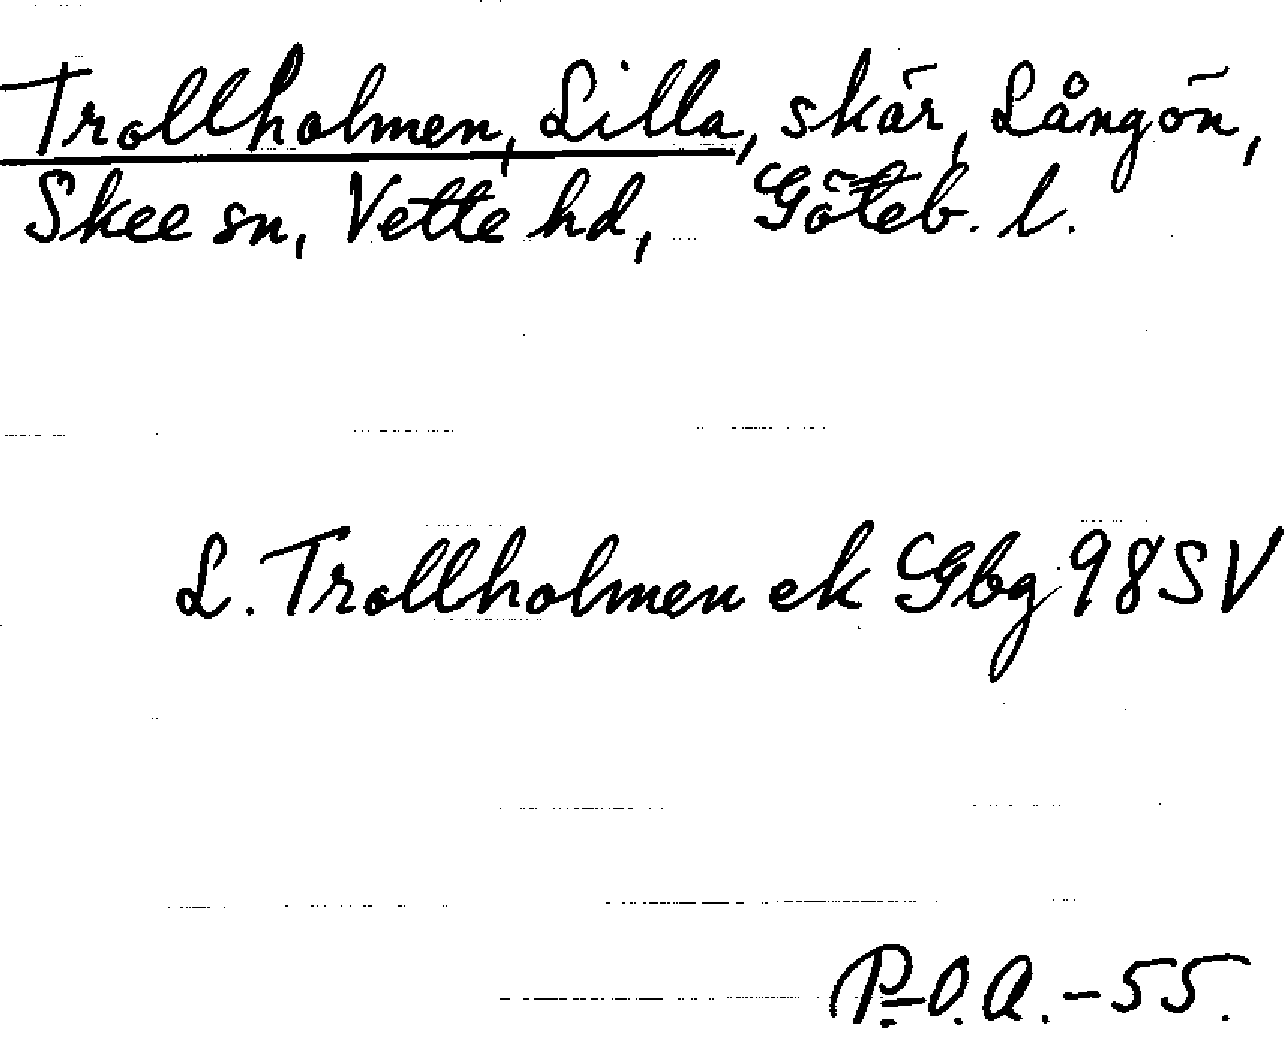 Trollholmen, Lilla, skär, Långön,
Skee sn, Vette hd, Göteb. l.
L. Trollholmen ek Gbg 98 SV
P.-O. A. -55.